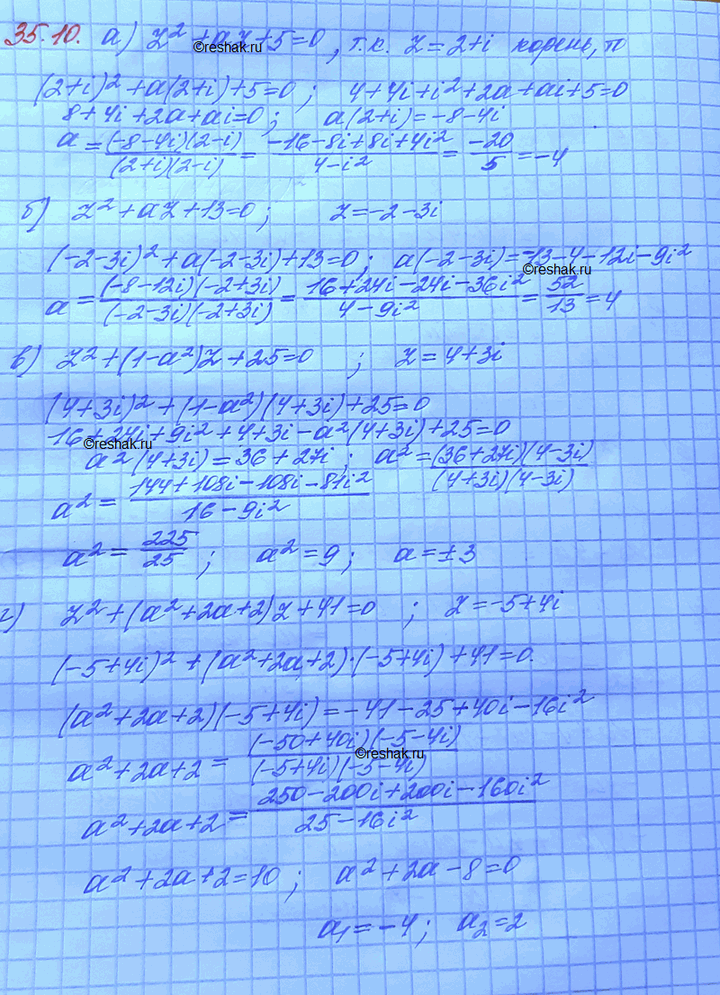 35.10. а) z² + az + 5 = 0, т.к. z = 2+i корень, то
(2+i)² + a(2+i) + 5 = 0; 4 + 4i + i² + 2a + ai + 5 = 0
8 + 4i + 2a + ai = 0; a(2+i) = -8-4i
a = (-8-4i)(2-i) / (2+i)(2-i) = -16-8i+8i+4i² / 4-i² = -20/5 = -4
б) z² + az + 13 = 0; z = -2-3i
(-2-3i)² + a(-2-3i) + 13 = 0; a(-2-3i) = -13-4-12i-9i²
a = (-8-12i)(-2+3i) / (-2-3i)(-2+3i) = 16+24i-24i-36i² / 4-9i² = 52/13 = 4
в) z² + (1-a²)z + 25 = 0; z = 4+3i
(4+3i)² + (1-a²)(4+3i) + 25 = 0
16 + 24i + 9i² + 4 + 3i - a²(4+3i) + 25 = 0
a²(4+3i) = 36 + 27i; a² = (36+27i)(4-3i) / (4+3i)(4-3i)
a² = 144+108i-108i-81i² / 16-9i²
a² = 225/25; a² = 9; a = ±3
г) z² + (a²+2a+2)z + 41 = 0; z = -5+4i
(-5+4i)² + (a²+2a+2)·(-5+4i) + 41 = 0.
(a²+2a+2)(-5+4i) = -41-25+40i-16i²
a²+2a+2 = (-50+40i)(-5-4i) / (-5+4i)(-5-4i)
a²+2a+2 = 250-200i+200i-160i² / 25-16i²
a²+2a+2 = 10; a²+2a-8 = 0
a₁ = -4; a₂ = 2
©reshak.ru
©reshak.ru
©reshak.ru
©reshak.ru